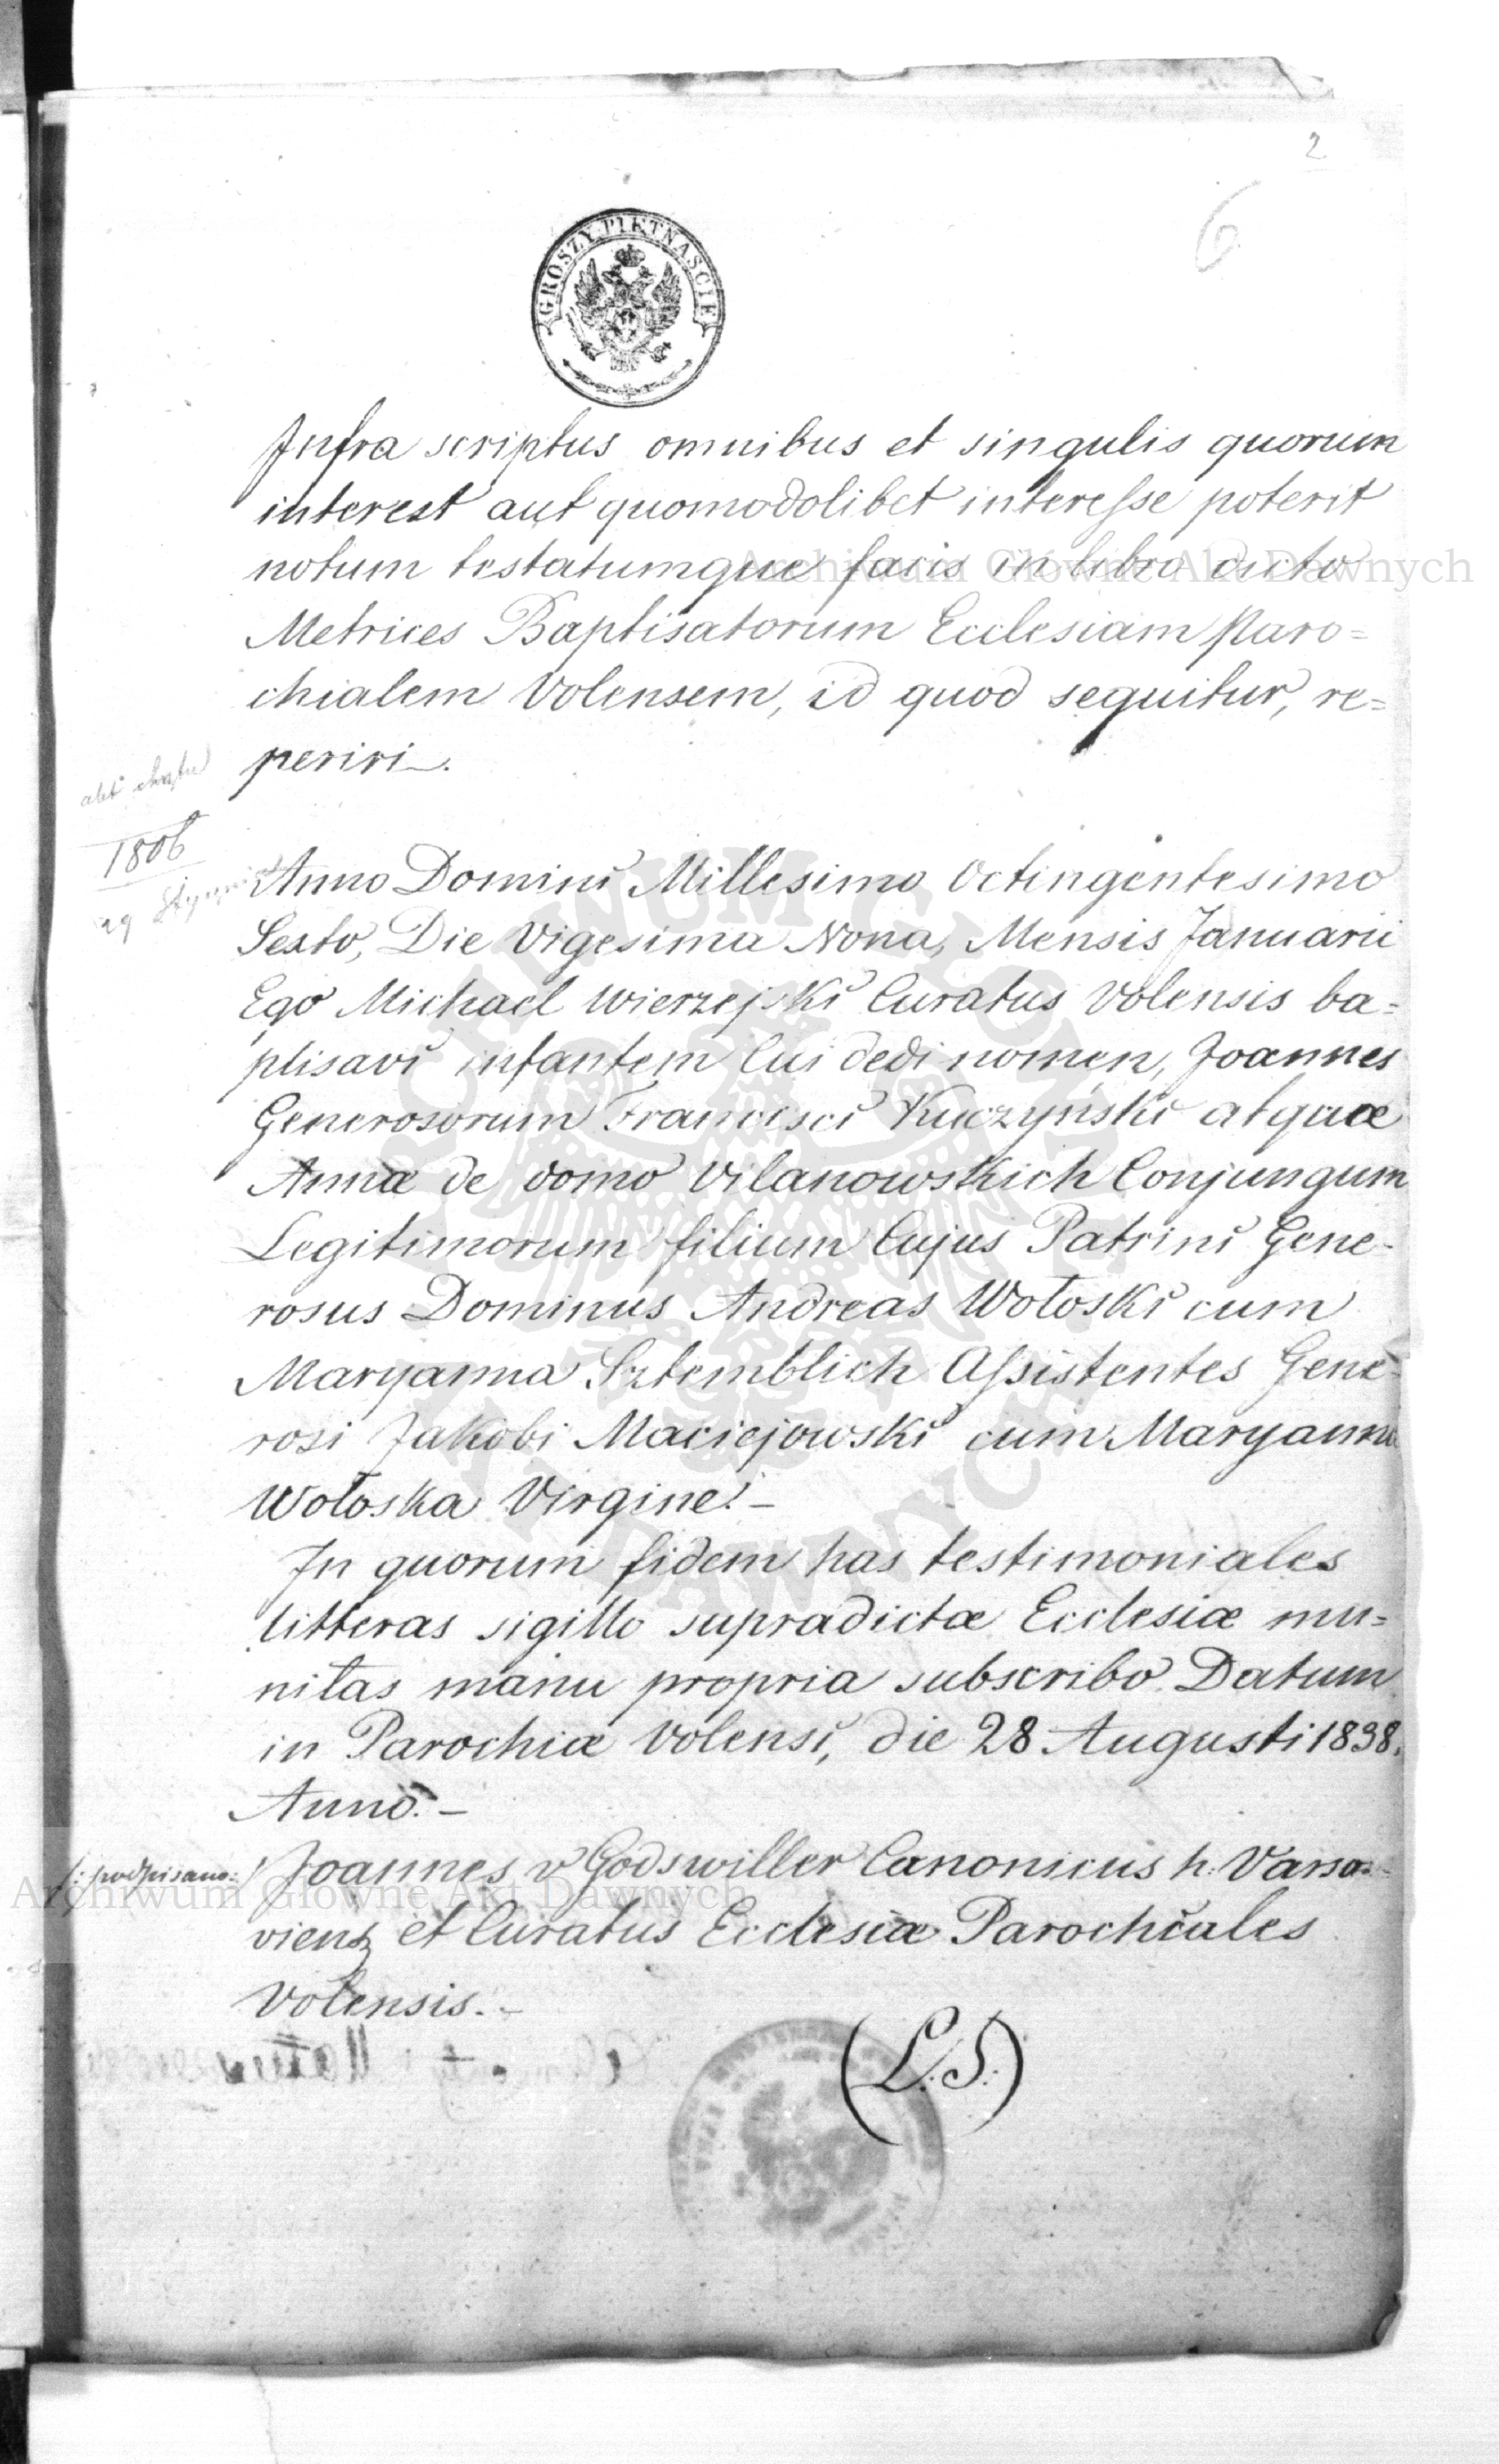 2
6
GROSZY PIĘTNAŚCIE
Infra scriptus omnibus et singulis quorum
interest aut quomodolibet interesse poterit
notum testatumque facio in libro dicto
Metrices Baptisatorum Ecclesiam Paro=
chialem Volensem, id quod sequitur, re=
periri.
akt chrztu
1806
29 Stycznia
Anno Domini Millesimo Octingentesimo
Sexto, Die Vigesima Nona, Mensis Januarii
Ego Michael Wierzejski Curatus Volensis ba=
ptisavi infantem Cui dedi nomen, Joannes
Generosorum Francisci Kuczyński atquae
Annæ de domo Vilanowskich Conjungum
Legitimorum filium Cujus Patrini Gene-
rosus Dominus Andreas Wołoski cum
Maryanna Sztemblich Assistentes Gene-
rosi Jakobi Maciejowski cum Maryanna
Wołoska Virgine.-
In quorum fidem has testimoniales
litteras sigillo supradictæ Ecclesiæ mu=
nitas manu propria subscribo Datum
in Parochiæ Volensi, die 28 Augusti 1838.
Anno.-
/: podpisano: / Joannes v Godswiller Canonicus h. Varso-
viens et Curatus Ecclesiæ Parochiales
Volensis.-
(L.S.)
Archiwum Główne Akt Dawnych
ARCHIWUM GŁÓWNE AKT DAWNYCH
Archiwum Główne Akt Dawnych